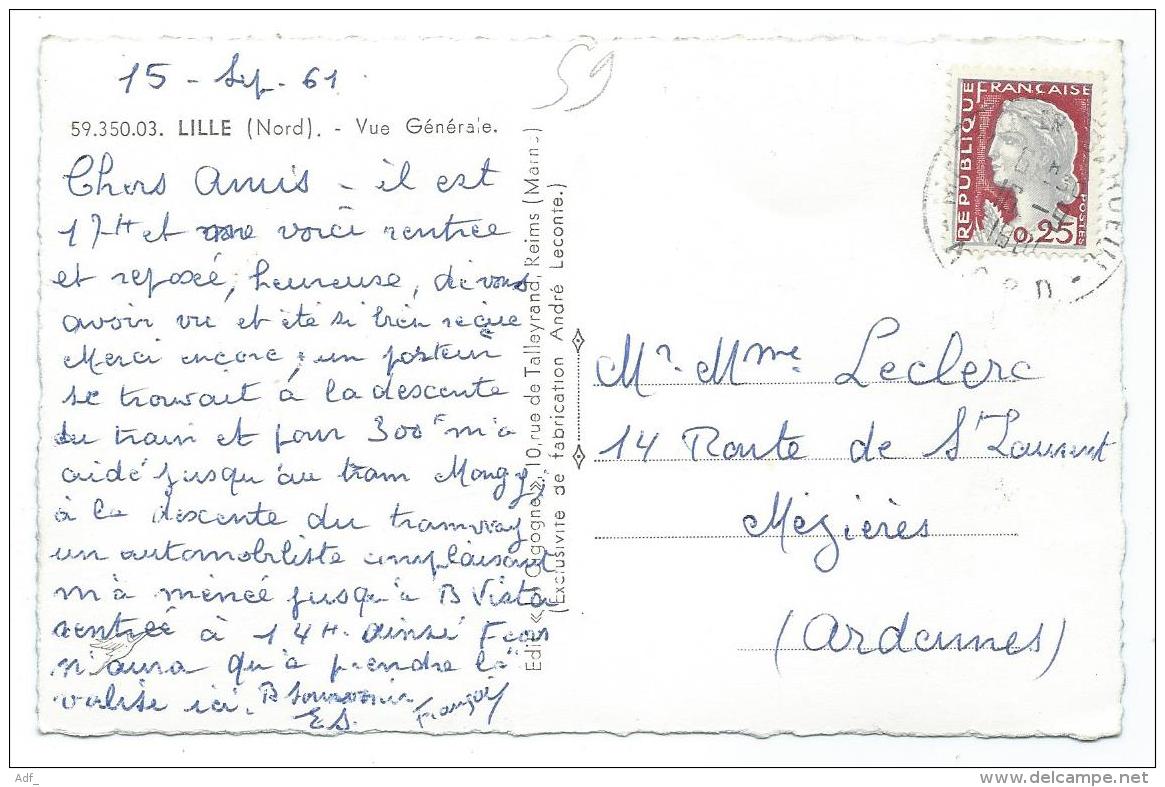 15 - Sep. 61.
59
59.350.03. LILLE (Nord). - Vue Générale.
Chers Amis - il est
17H et me voici rentrée
et reposée, heureuse, de vous
avoir vu et été si bien reçue
Merci encore, un porteur
se trouvait à la descente
du train et pour 300F m'a
aidé jusqu'au tram Mongy,
à la descente du tramway
un automobiliste complaisant
m'a mené jusqu'à B Vista
rentrée à 14H. ainsi
n'aura qu'à prendre la
valise ici. B souvenir
E S. François
Edit. « La Cigogne », 10, rue de Talleyrand, Reims (Marne)
(Exclusivité de fabrication André Leconte.)
REPUBLIQUE FRANÇAISE
POSTES
0,25
Mr. Mme Leclerc
14 Route de St Laurent
Mézières
(Ardennes)
Adf_
delcampe.net